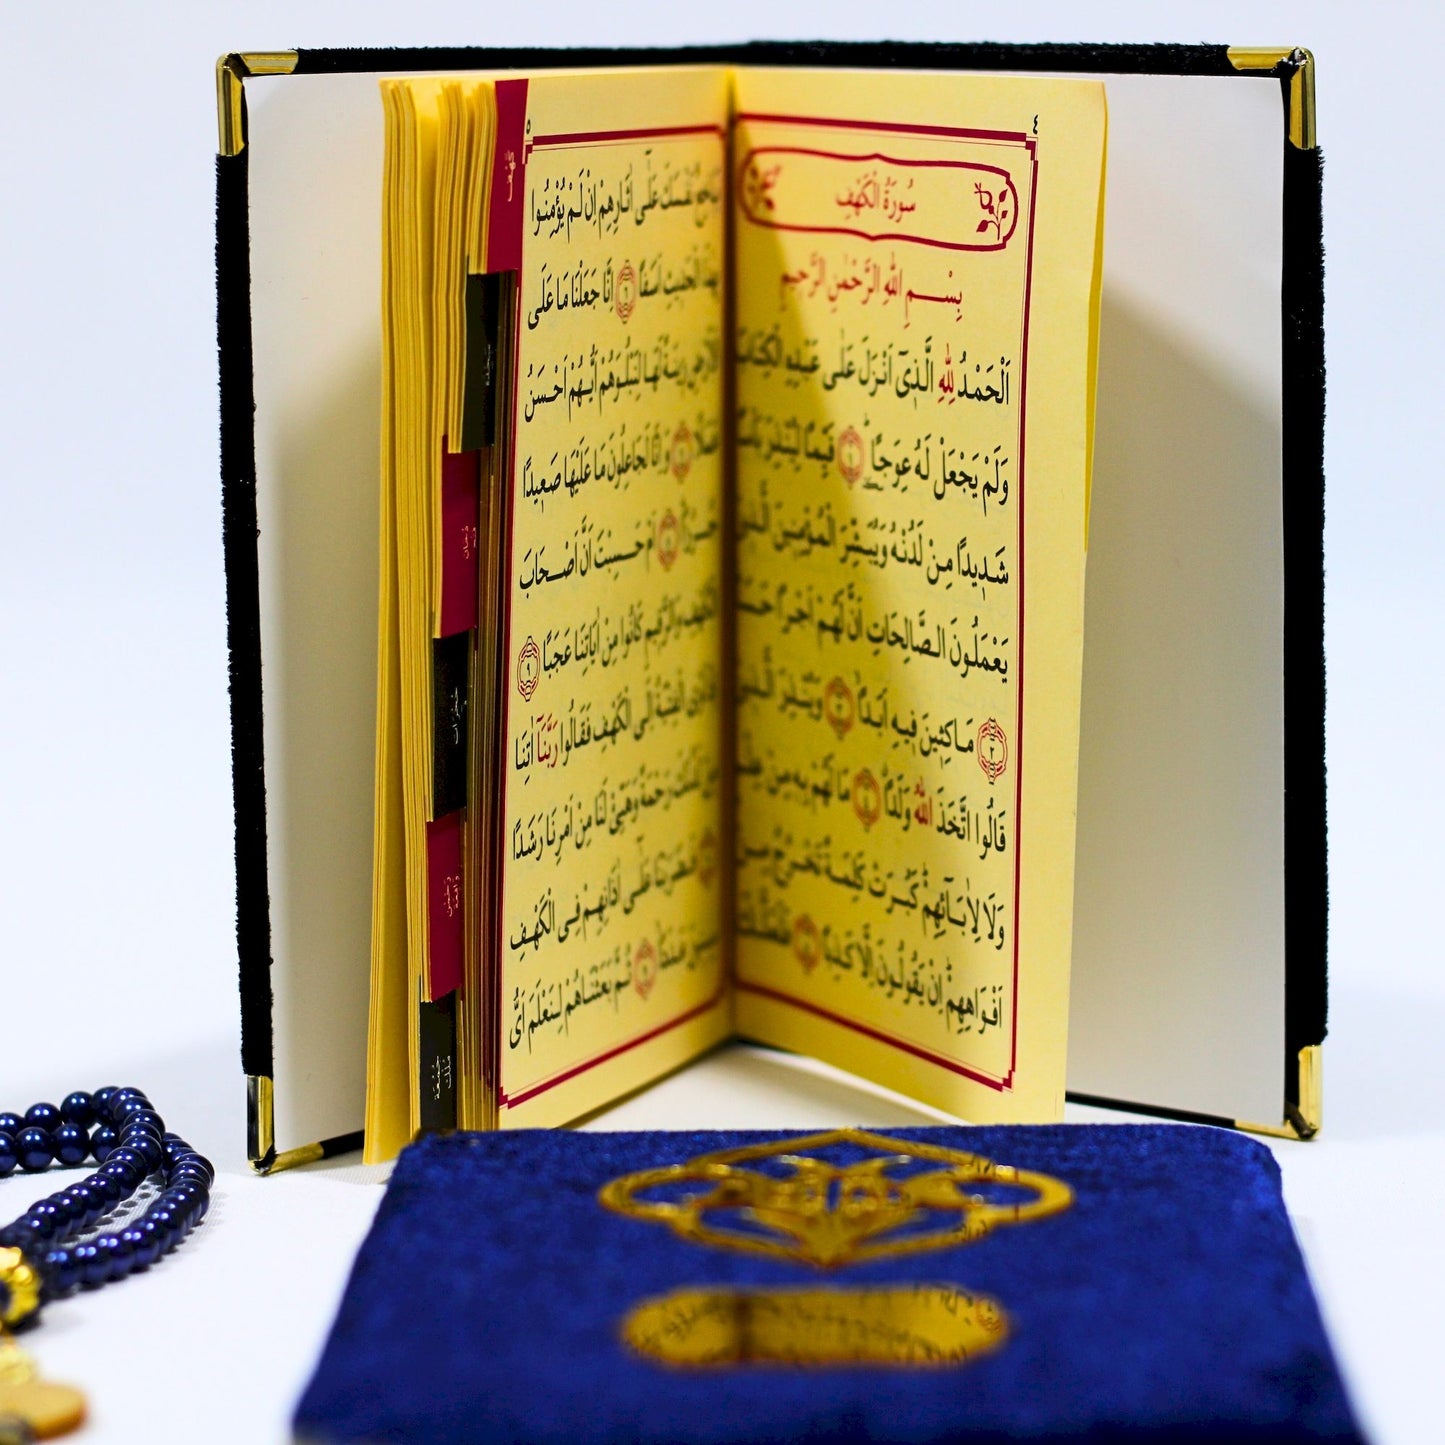 ٤
سُورَةُ الْكَهْفِ
بِسْــــمِ اللّٰهِ الرَّحْمٰنِ الرَّح۪يمِ
اَلْحَمْدُ لِلّٰهِ الَّذ۪ٓي اَنْزَلَ عَلٰى عَبْدِهِ الْكِتَابَ
وَلَمْ يَجْعَلْ لَهُ عِوَجًاۜ ﴿١﴾ قَيِّمًا لِيُنْذِرَ بَأْسًا
شَد۪يدًا مِنْ لَدُنْهُ وَيُبَشِّرَ الْمُؤْمِن۪ينَ الَّذ۪ينَ
يَعْمَلُونَ الصَّالِحَاتِ اَنَّ لَهُمْ اَجْرًا حَسَنًا
﴿٢﴾ مَاكِث۪ينَ ف۪يهِ اَبَدًاۙ ﴿٣﴾ وَيُنْذِرَ الَّذ۪ينَ
قَالُوا اتَّخَذَ اللّٰهُ وَلَدًاۗ ﴿٤﴾ مَا لَهُمْ بِه۪ مِنْ عِلْمٍ
وَلَا لِاٰبَٓائِهِمْۜ كَبُرَتْ كَلِمَةً تَخْرُجُ مِنْ
اَفْوَاهِهِمْۜ اِنْ يَقُولُونَ اِلَّا كَذِبًا ﴿٥﴾ فَلَعَلَّكَ
٥
بَاخِعٌ نَفْسَكَ عَلٰٓى اٰثَارِهِمْ اِنْ لَمْ يُؤْمِنُوا
بِهٰذَا الْحَد۪يثِ اَسَفًا ﴿٦﴾ اِنَّا جَعَلْنَا مَا عَلَى
الْاَرْضِ ز۪ينَةً لَهَا لِنَبْلُوَهُمْ اَيُّهُمْ اَحْسَنُ
عَمَلًا ﴿٧﴾ وَاِنَّا لَجَاعِلُونَ مَا عَلَيْهَا صَع۪يدًا
جُرُزًاۜ ﴿٨﴾ اَمْ حَسِبْتَ اَنَّ اَصْحَابَ
الْكَهْفِ وَالرَّق۪يمِ كَانُوا مِنْ اٰيَاتِنَا عَجَبًا ﴿٩﴾
اِذْ اَوَى الْفِتْيَةُ اِلَى الْكَهْفِ فَقَالُوا رَبَّنَٓا اٰتِنَا
مِنْ لَدُنْكَ رَحْمَةً وَهَيِّئْ لَنَا مِنْ اَمْرِنَا رَشَدًا
فَضَرَبْنَا عَلٰٓى اٰذَانِهِمْ فِي الْكَهْفِ
سِن۪ينَ عَدَدًاۙ ثُمَّ بَعَثْنَاهُمْ لِنَعْلَمَ اَيُّ
كَهْف
سَجْدَة
دُخَان
فَتْح
حُجُرَات
رَحْمٰن
وَاقِعَة
جُمُعَة
مُلْك